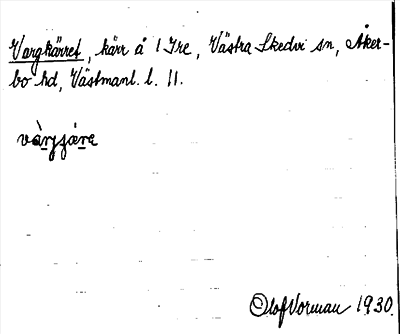 Vargkärret, kärr å 1 Tre, Västra Skedvi sn, Åker-
bo hd, Västmanl. l. 11.
Olof Vorman 1930.